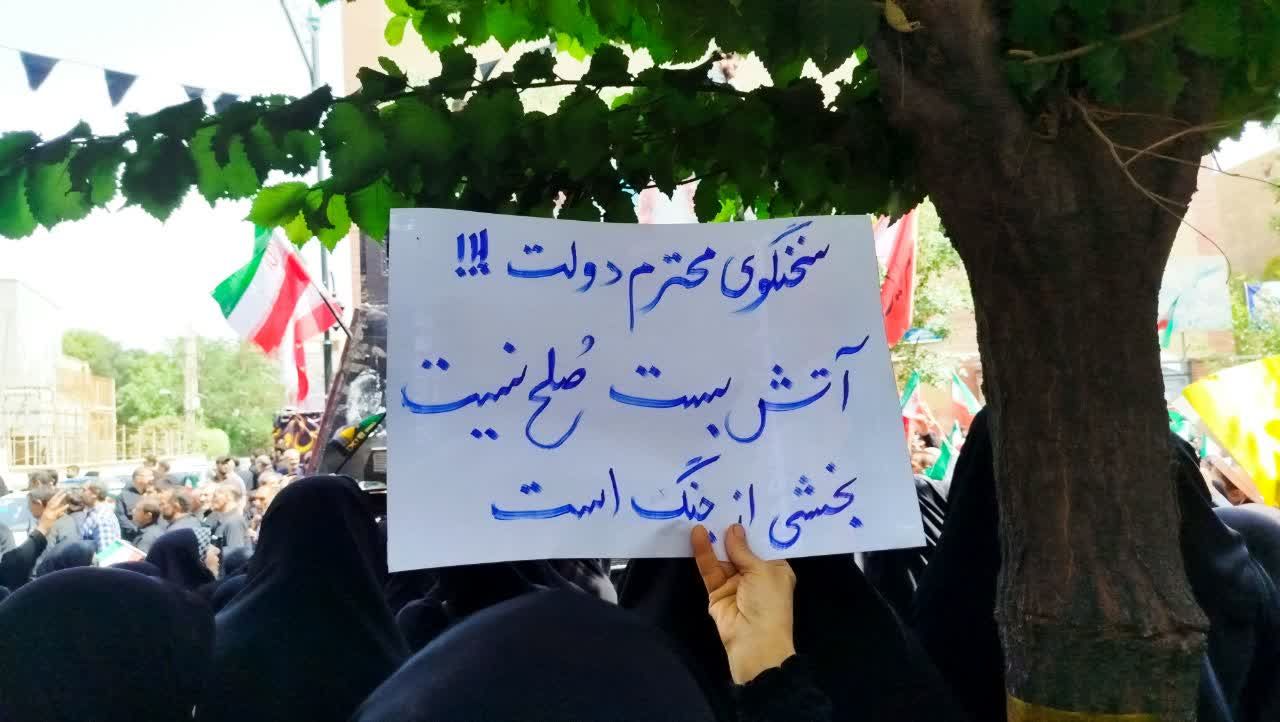 سخنگوی محترم دولت !!!
آتش بست صُلح نیست
بخشی از جنگ است